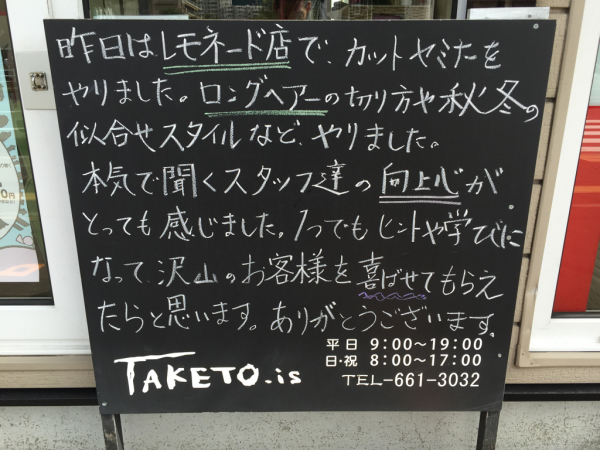 昨日はレモネード店で、カットセミナーを
やりました。ロングヘアーの切り方や秋冬の
似合せスタイルなど、やりました。
本気で聞くスタッフ達の向上心が
とっても感じました。1つでもヒントや学びに
なって、沢山のお客様を喜ばせてもらえ
たらと思います。ありがとうございます。
平日 9:00〜19:00
日・祝 8:00〜17:00
TAKETO.is
TEL-661-3032